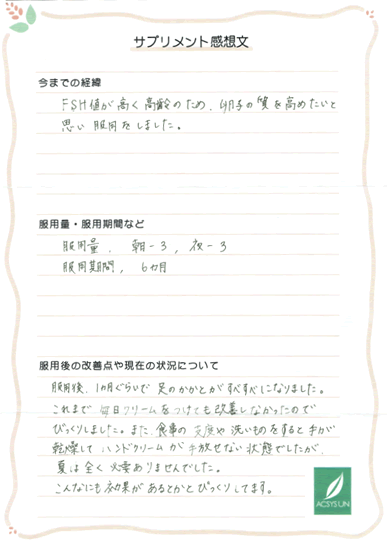 サプリメント感想文
今までの経緯
FSH値が高く高齢のため、卵子の質を高めたいと
思い服用をしました。
服用量・服用期間など
服用量、朝-3、夜-3
服用期間、6カ月
服用後の改善点や現在の状況について
服用後、1カ月ぐらいで足のかかとがすべすべになりました。
これまで毎日クリームをつけても改善しなかったので
びっくりしました。また、食事の支度や洗いものをすると手が
乾燥してハンドクリームが手放せない状態でしたが、
夏は全く必要ありませんでした。
こんなにも効果があるとかとびっくりしてます。
ACSYS UN